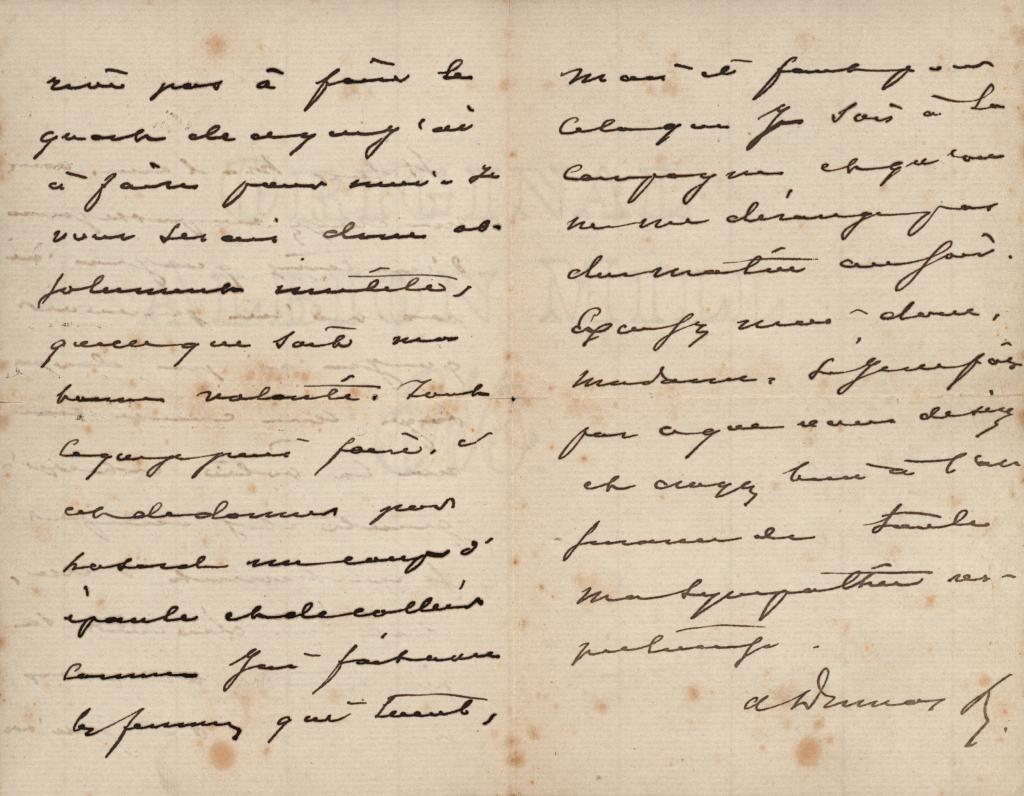 rive pas à faire le
quart de ce que j'ai
à faire pour moi. Je
vous serais donc ab-
solument inutile,
quelle que soit ma
bonne volonté. Tout
ce que je puis faire, c'
est de donner par
hasard un coup d'
épaule et de collier
comme j'ai fait avec
les femmes qui tuent,
mais il faut pour
cela que je sois à la
campagne et qu'on
ne me dérange pas
du matin au soir.
Excusez moi donc,
Madame, si je ne fais
pas ce que vous désirez
et croyez bien à l'as
surance de toute
ma sympathie res-
pectueuse.
A Dumas f.